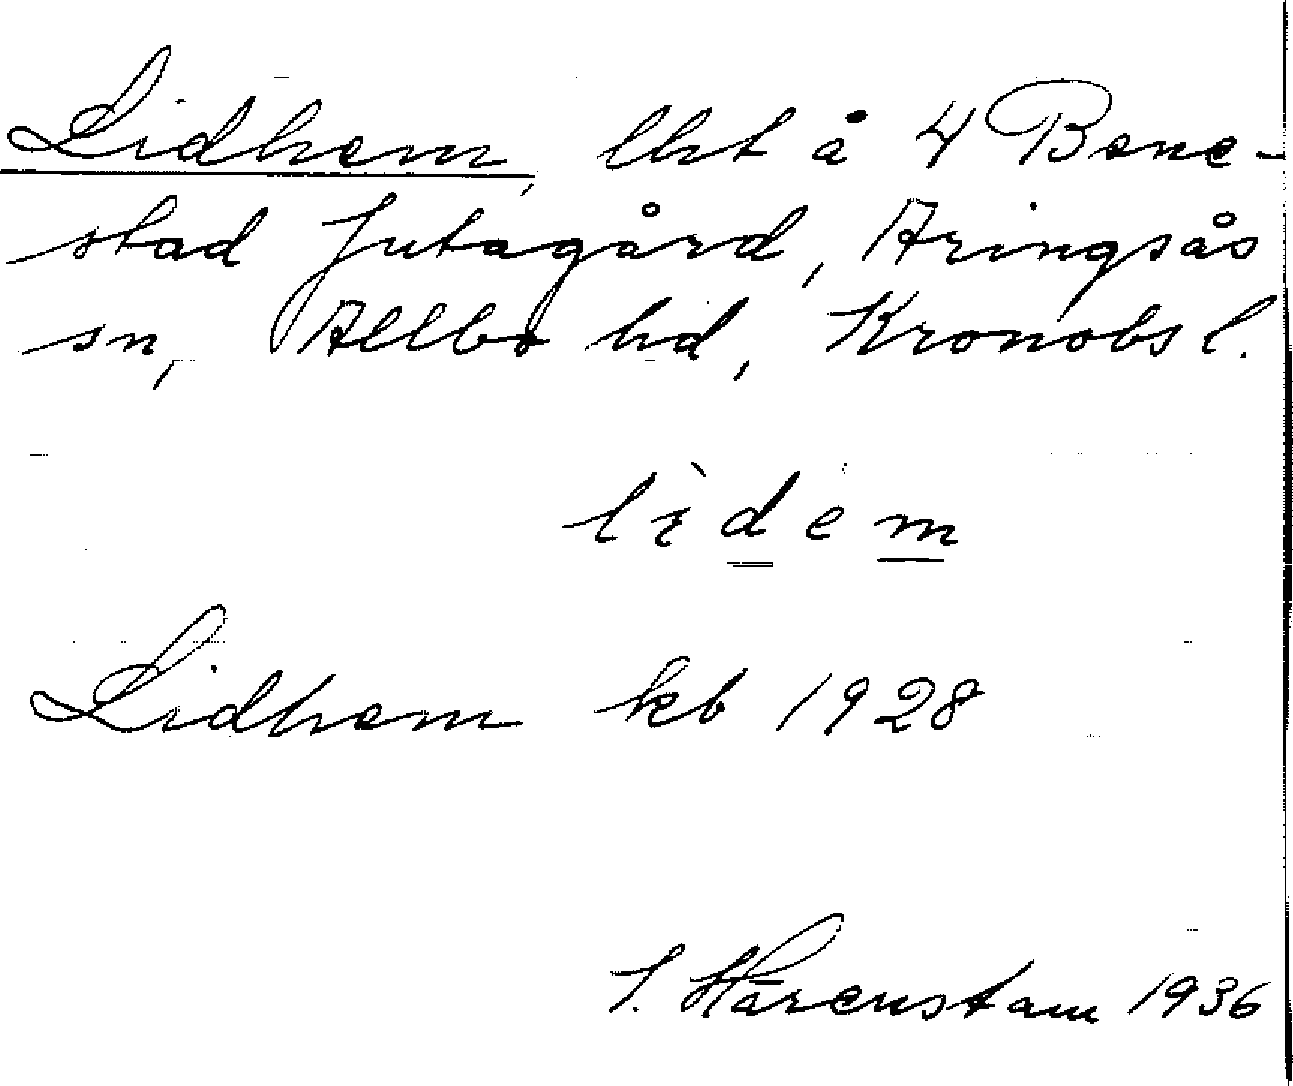 Lidhem, lht å 4 Bene-
stad Jutagård, Aringsås
sn, Allbo hd, Kronobs l.
lìdem
Lidhem kb 1928
I. Härenstam 1936